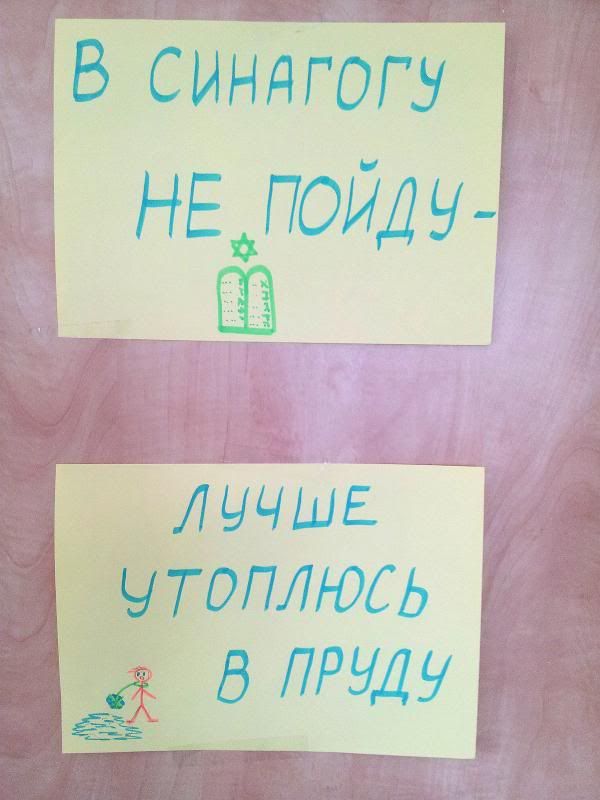 В СИНАГОГУ
НЕ ПОЙДУ-
ЛУЧШЕ
УТОПЛЮСЬ
В ПРУДУ